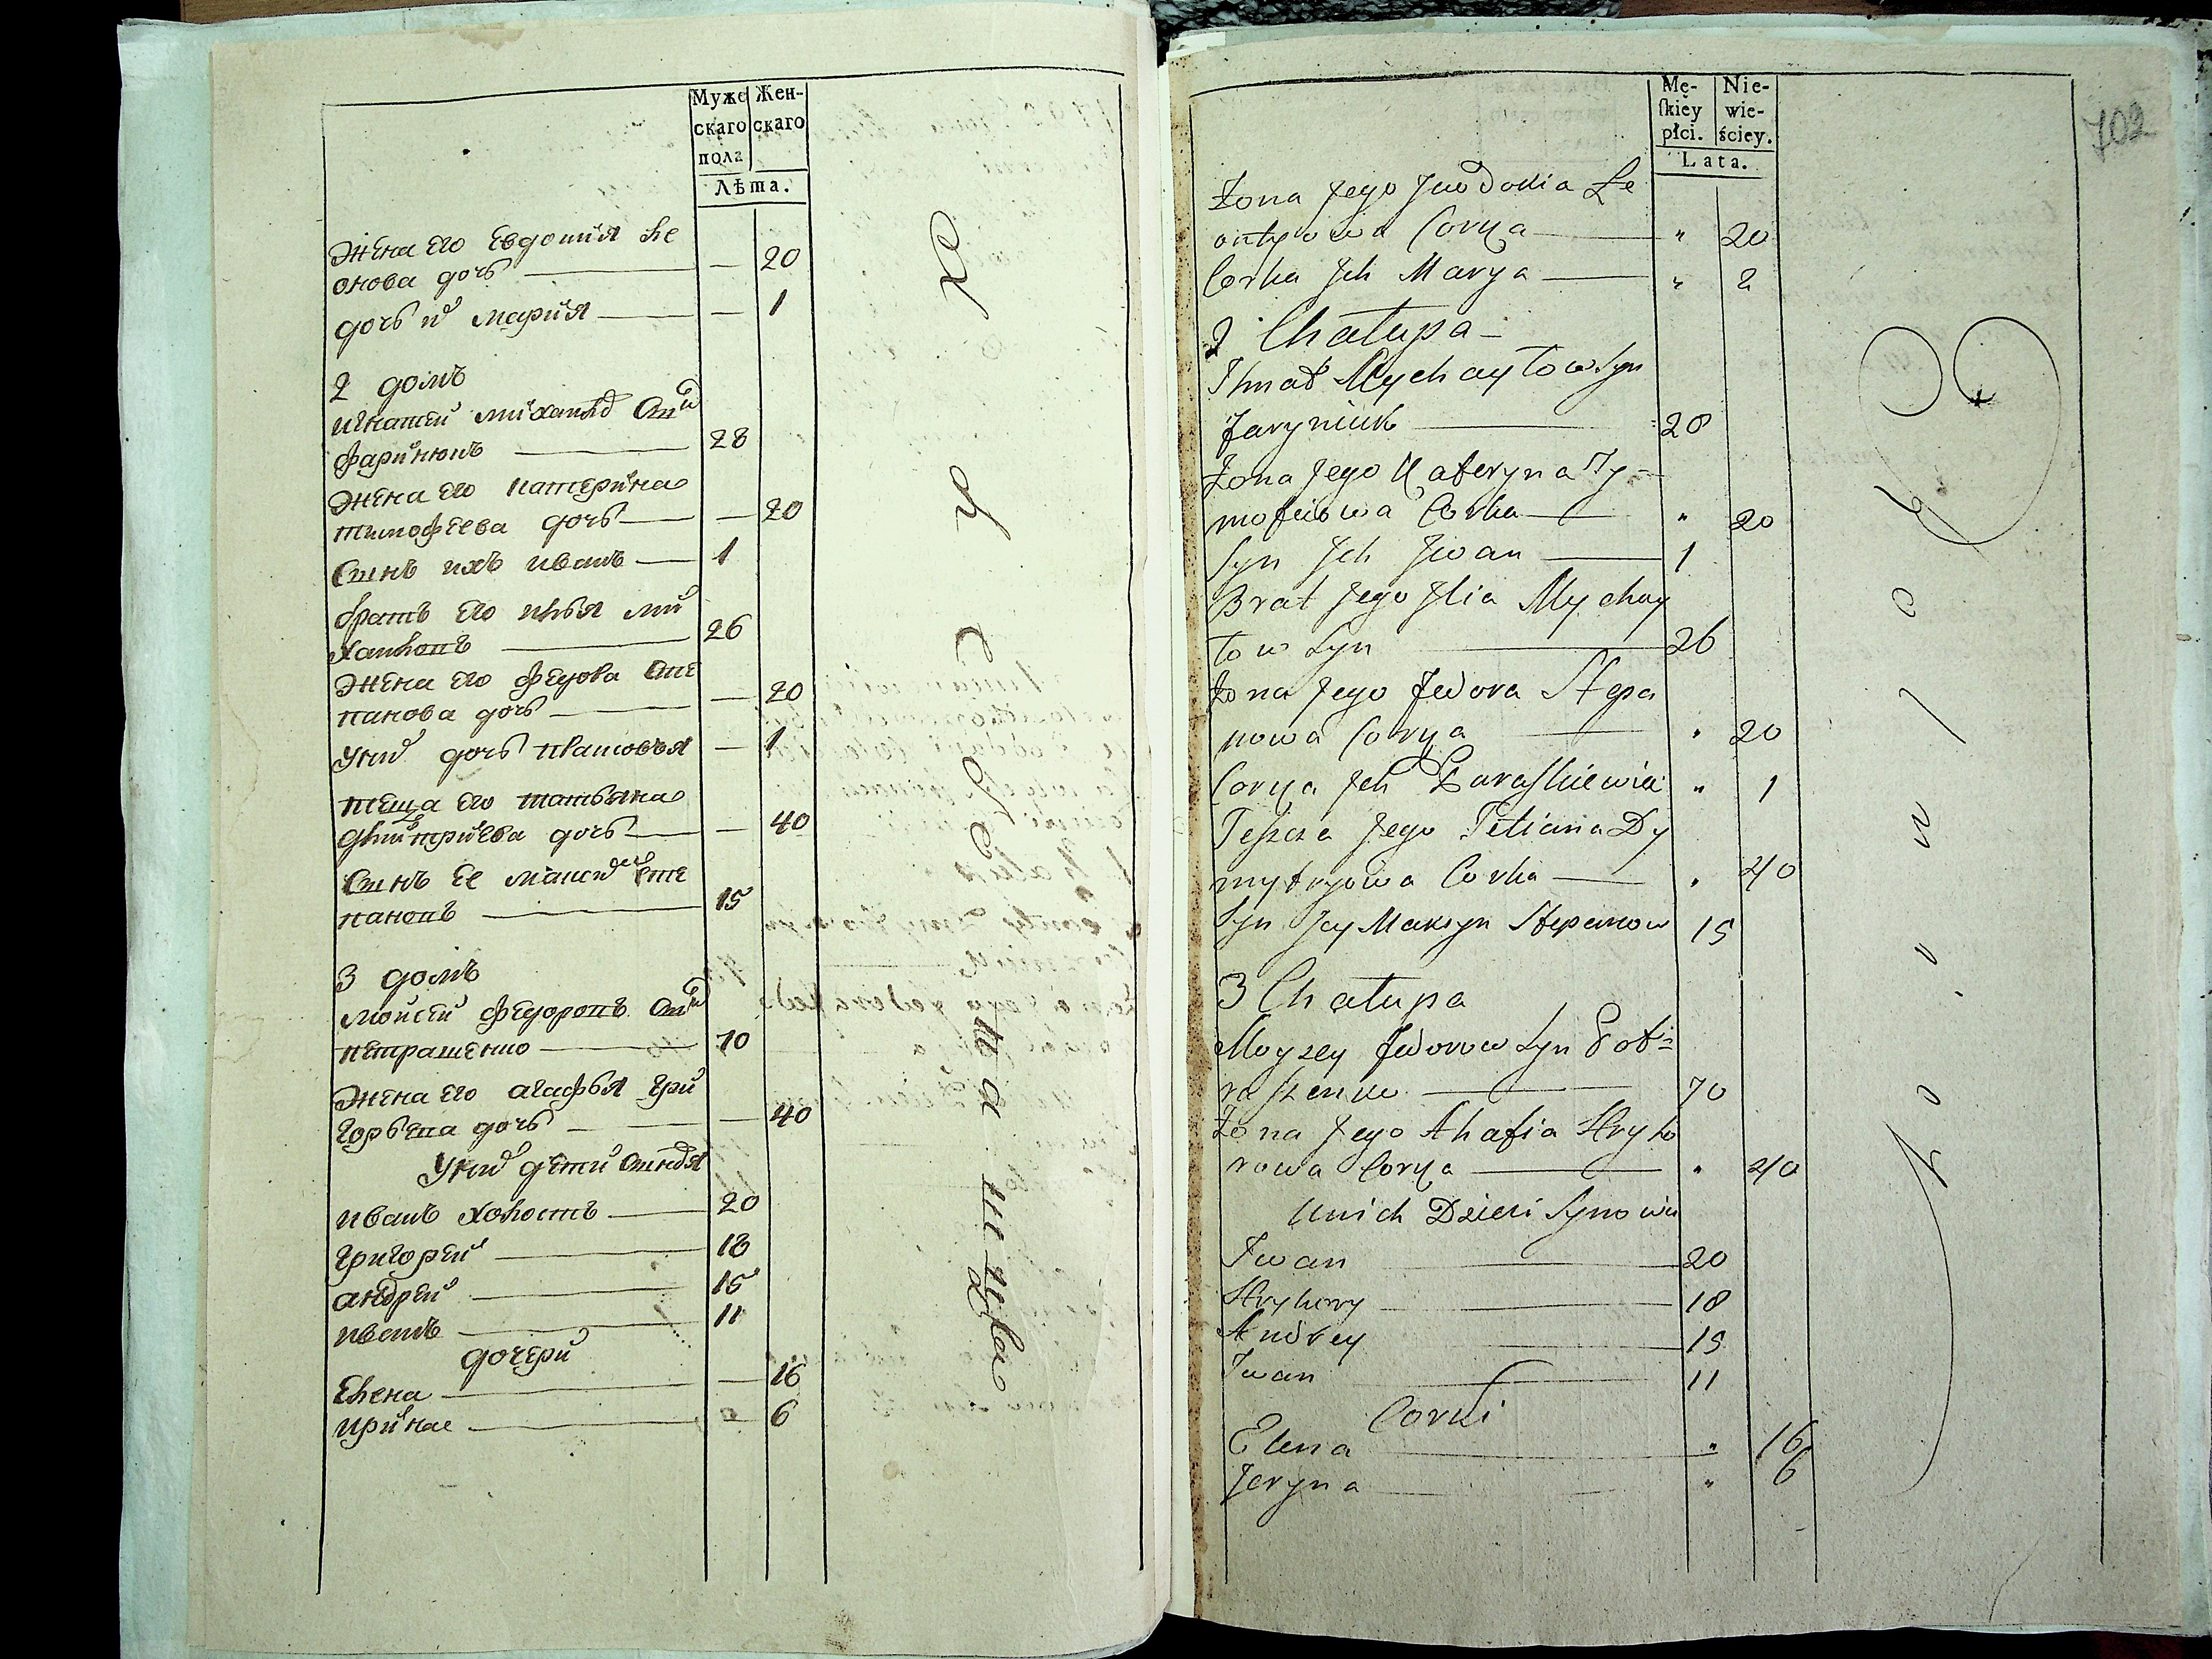 Муже Жен-
скаго скаго
пола
Лѣта.
Жена его Евдокия Ле
онова дочь — — 20
дочь их Мария — — 1
2 домъ
Игнатей Михайло Сын
Фаринюкъ — 28
Жена его Катерина
Тимофеева дочь — — 20
Сынъ ихъ Иванъ — 1
братъ его Илья Ми
хайловъ — 26
Жена его Федора Сте
панова дочь — — 20
у них дочь — 1
теща его Татьяна
Дмитриева дочь — — 40
Сынъ ее Максим Сте
пановъ — 15
3 домъ
Моисей Федоровъ Сын
Петрашенко — 70
Жена его Агафья Гри
горьева дочь — — 40
у них дети Сыновья
Иванъ холостъ — 20
Григорей — 18
Андрей — 15
Иванъ — 11
дочери
Елена — — 16
Ирина — — 6
702
Mę- Nie-
ſkiéy wie-
płci. ściey.
Lata.
Żona Jego Jewdokia Le
ontyowa Corka — " 20
Corka Jch Marya — " 2
2 Chałupa —
Ihnat Mychayłow Syn
Faryniuk — 28
Żona Jego Kateryna Ty=
mofiiowa Corka — " 20
Syn Jch Jwan — 1
Brat Jego Jlia Mychay
łow Syn — 26
Żona Jego Fedora Stepa
nowa Corka — " 20
Corka Jch Paraskiewia " 1
Teszcza Jego Tetiana Dy
mytryowa Corka — " 40
Syn Jey Maksym Stepanow 15
3 Chałupa
Moyzey Fedorow Syn Pet=
raszenko — 70
Żona Jego Ahafia Hryho
rowa Corka — " 40
Unich Dzieci Synowie
Jwan — 20
Hryhory — 18
Andrey — 15
Jwan — 11
Corki
Elena — " 16
Jeryna — " 6